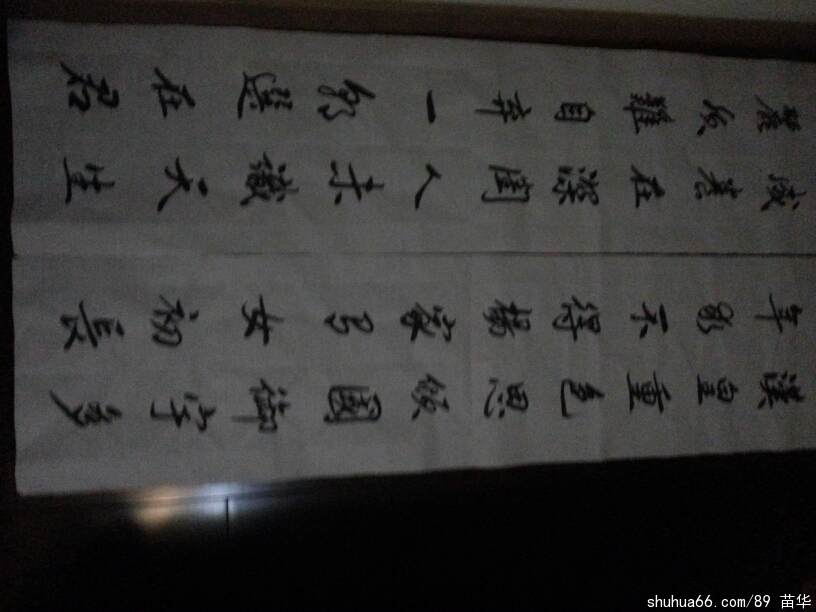 漢皇重色思傾國御宇多
年求不得楊家有女初長
成養在深閨人未識天生
麗質難自弃一朝選在君
shuhua66.com/89 苗华